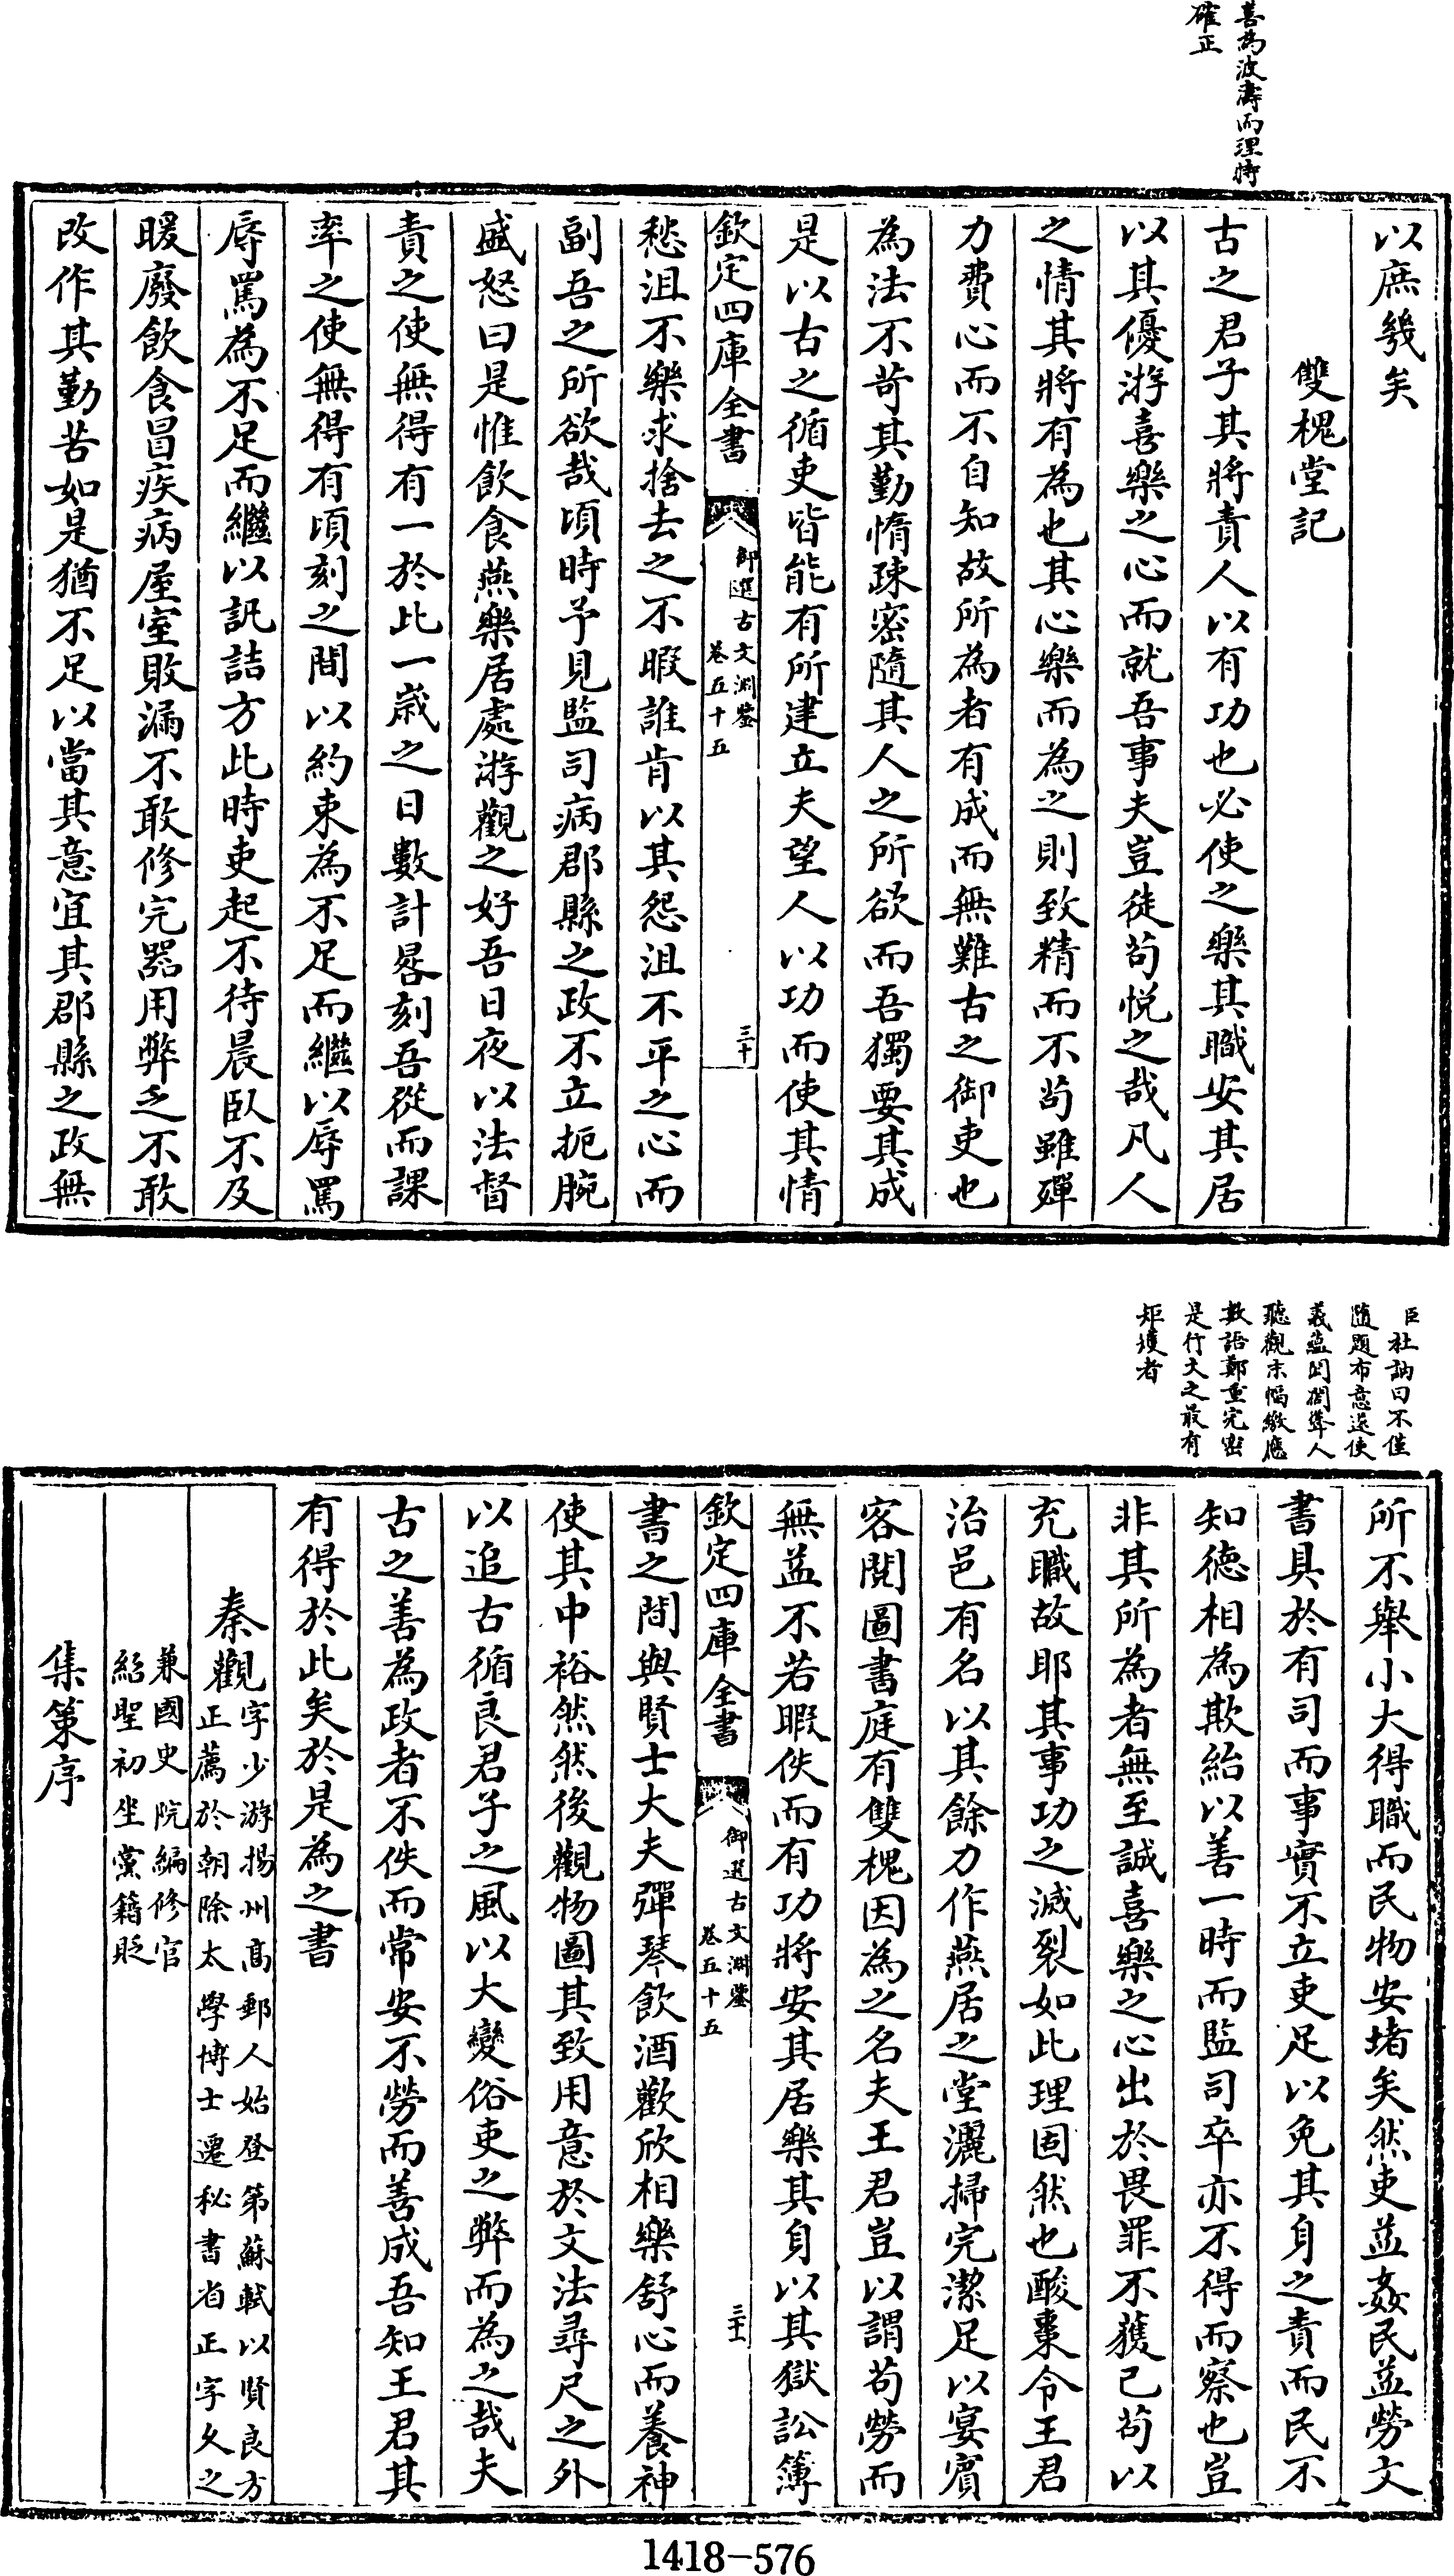 善為波濤而理特
確正
以庶幾矣
雙槐堂記
古之君子其將責人以有功也必使之樂其職安其居
以其優游喜樂之心而就吾事夫豈徒苟悅之哉凡人
之情其將有為也其心樂而為之則致精而不苟雖殫
力費心而不自知故所為者有成而無難古之御吏也
為法不苛其勤惰疎密隨其人之所欲而吾獨要其成
是以古之循吏皆能有所建立夫望人以功而使其情
欽定四庫全書
御選古文淵鑒
卷五十五
三十
愁沮不樂求捨去之不暇誰肯以其怨沮不平之心而
副吾之所欲哉頃時予見監司病郡縣之政不立扼腕
盛怒曰是惟飲食燕樂居處游觀之好吾日夜以法督
責之使無得有一於此一嵗之日數計晷刻吾從而課
率之使無得有頃刻之間以約束為不足而繼以辱罵
辱罵為不足而繼以訊詰方此時吏起不待晨臥不及
暖廢飲食冒疾病屋室敗漏不敢修完器用弊乏不敢
改作其勤苦如是猶不足以當其意宜其郡縣之政無
臣杜訥曰不僅
隨題布意遂使
義蘊閎闊聳人
聽觀末幅繳應
數語鄭重完密
是行文之最有
矩矱者
所不舉小大得職而民物安堵矣然吏益姦民益勞文
書具於有司而事實不立吏足以免其身之責而民不
知德相為欺紿以善一時而監司卒亦不得而察也豈
非其所為者無至誠喜樂之心出於畏罪不獲已苟以
充職故耶其事功之滅裂如此理固然也酸棗令王君
治邑有名以其餘力作燕居之堂灑掃完潔足以宴賓
客閱圖書庭有雙槐因為之名夫王君豈以謂苟勞而
無益不若暇佚而有功將安其居樂其身以其獄訟簿
欽定四庫全書
御選古文淵鑒
卷五十五
三十一
書之間與賢士大夫彈琴飲酒歡欣相樂舒心而養神
使其中裕然然後觀物圖其致用意於文法尋尺之外
以追古循良君子之風以大變俗吏之弊而為之哉夫
古之善為政者不佚而常安不勞而善成吾知王君其
有得於此矣於是為之書
秦觀
字少游揚州高郵人始登第蘇軾以賢良方
正薦於朝除太學博士遷秘書省正字久之
兼國史院編修官
紹聖初坐黨籍貶
集策序
1418-576